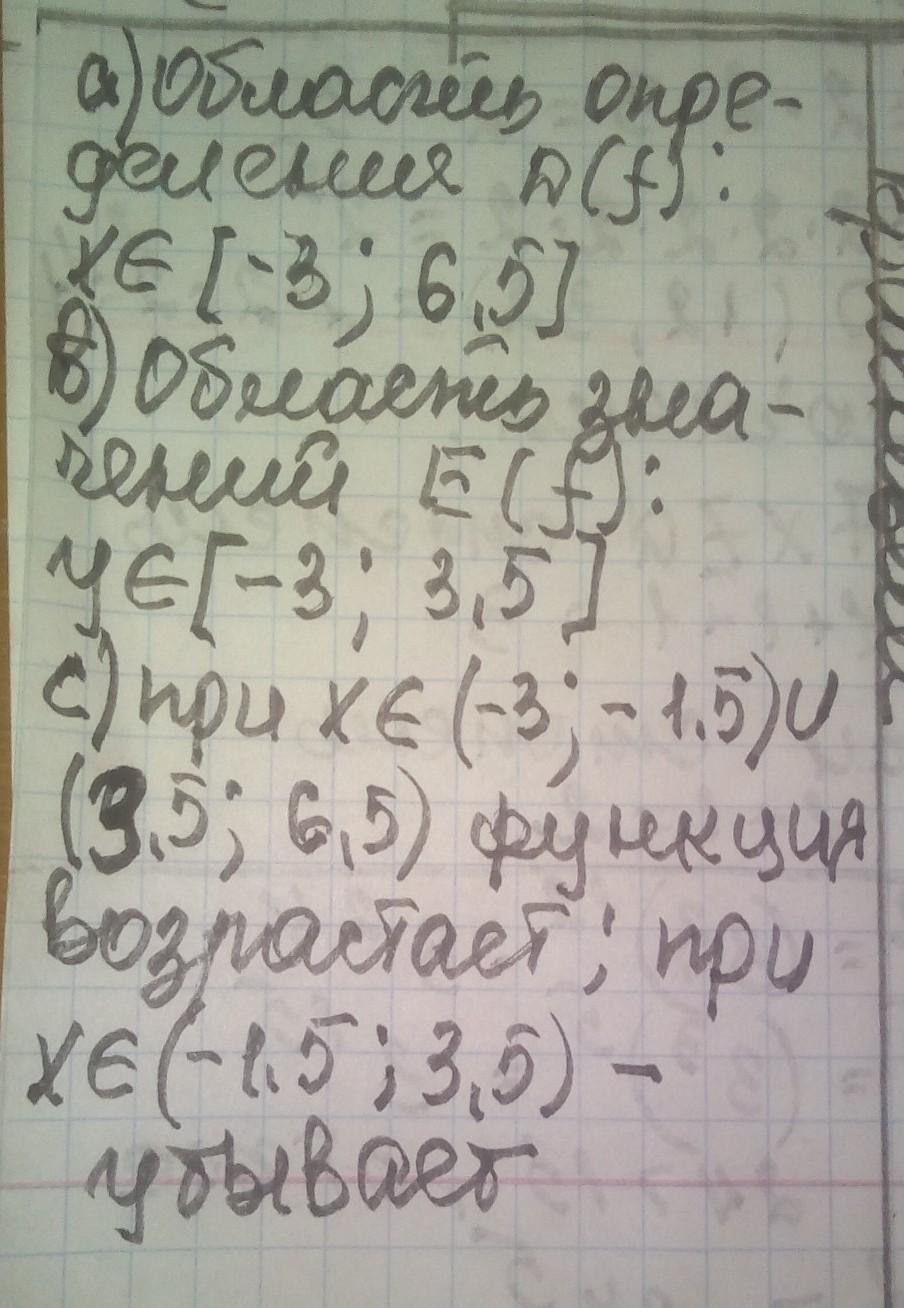 а) Область опре-
деления D(f):
x∈[-3; 6,5]
в) Область зна-
чений E(f):
y∈[-3; 3,5]
с) при x∈(-3; -1.5)∪
(3,5; 6,5) функция
возрастает; при
x∈(-1.5; 3,5) -
убывает